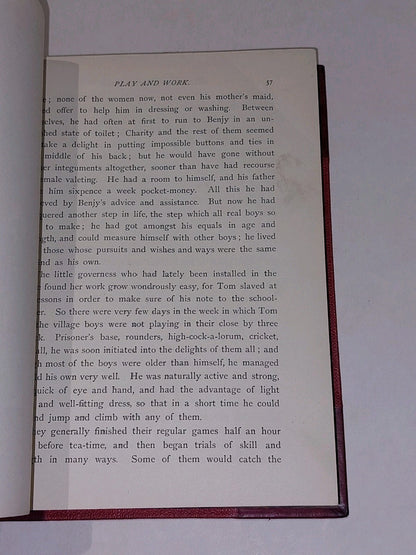 PLAY AND WORK. 57
e; none of the women now, not even his mother's maid,
ed offer to help him in dressing or washing. Between
selves, he had often at first to run to Benjy in an un-
shed state of toilet; Charity and the rest of them seemed
ake a delight in putting impossible buttons and ties in
middle of his back; but he would have gone without
er integuments altogether, sooner than have had recourse
emale valeting. He had a room to himself, and his father
him sixpence a week pocket-money. All this he had
eved by Benjy's advice and assistance. But now he had
quered another step in life, the step which all real boys so
to make; he had got amongst his equals in age and
ngth, and could measure himself with other boys; he lived
those whose pursuits and wishes and ways were the same
nd as his own.
he little governess who had lately been installed in the
found her work grow wondrously easy, for Tom slaved at
essons in order to make sure of his note to the school-
er. So there were very few days in the week in which Tom
the village boys were not playing in their close by three
k. Prisoner's base, rounders, high-cock-a-lorum, cricket,
all, he was soon initiated into the delights of them all; and
h most of the boys were older than himself, he managed
ld his own very well. He was naturally active and strong,
quick of eye and hand, and had the advantage of light
and well-fitting dress, so that in a short time he could
nd jump and climb with any of them.
hey generally finished their regular games half an hour
before tea-time, and then began trials of skill and
th in many ways. Some of them would catch the